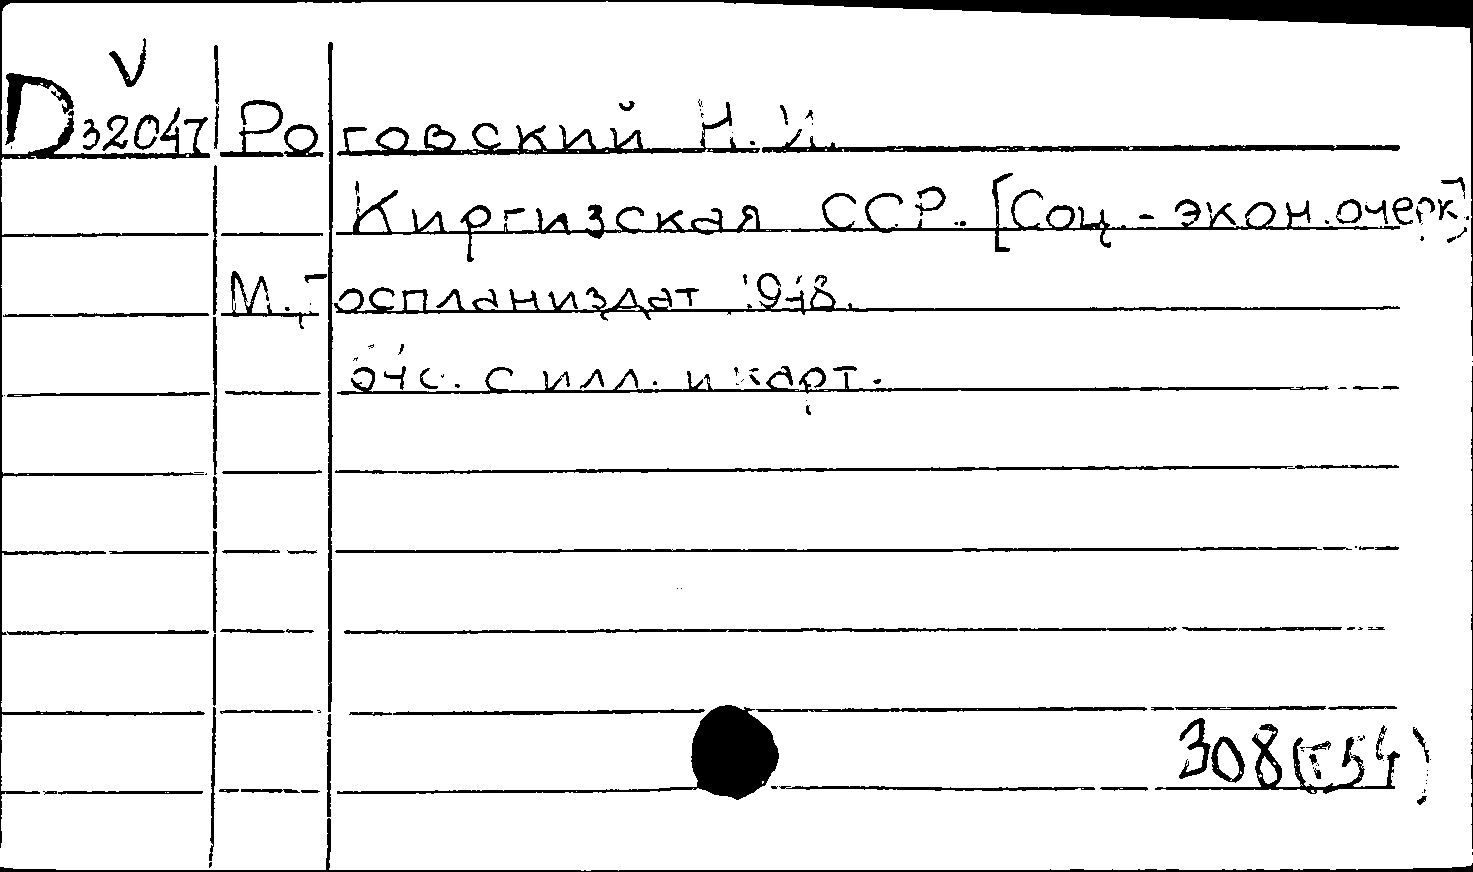 V
D 32047 Роговский Н.И.
Киргизская ССР. [Соц.-экон.очерк]
М., Госпланиздат 1948.
с. с илл. и карт.
308(г54)